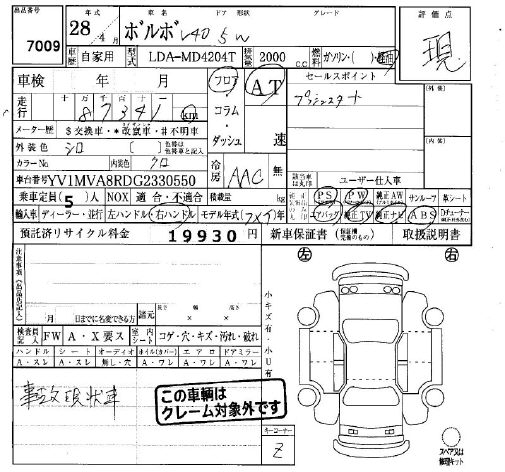 出品番号 年式 車名 ドア 形状 グレード 評価点
7009 28年4月 ボルボ V40 5W 現
車歴 自家用 型式 LDA-MD4204T 排気量 2000 C.C 燃料 ガソリン・( )・軽油
車検 年 月 フロア AT セールスポイント
走行 十万 万 千 百 十 一 km コラム
メーター歴 $交換車・*改ざん車・#不明車 ダッシュ 速
外装色 シロ 色替車は元色を記入
カラーNo 内装色 クロ 冷房 AAC 無 ユーザー仕入車
車台番号 YV1MVA8RDG2330550
乗車定員( 5 )人 NOX 適合・不適合 積載量 kg PS PW 純正AW サンルーフ 革シート
輸入車 ディーラー・並行 左ハンドル・右ハンドル モデル年式( )年 エアバッグ 純正TV 純正ナビ ABS
預託済リサイクル料金 19930円 新車保証書 取扱説明書
左 右
注意事項(出品店記入)
月 日までに名変できる方 諸元 長さ 幅 高さ
検査員記入 FW A・X要ス 室内シート コゲ・穴・キズ・汚れ・破れ 小キズ有・小U有
ハンドル シート オーディオ ホイル(カバー) エアロ ドアミラー
A・スレ A・スレ 無し・穴 A・ワレ A・ワレ A・ワレ
事故現状車
この車輌は
クレーム対象外です
キーコーナー
Z
スペアタイヤ又は
修理キット